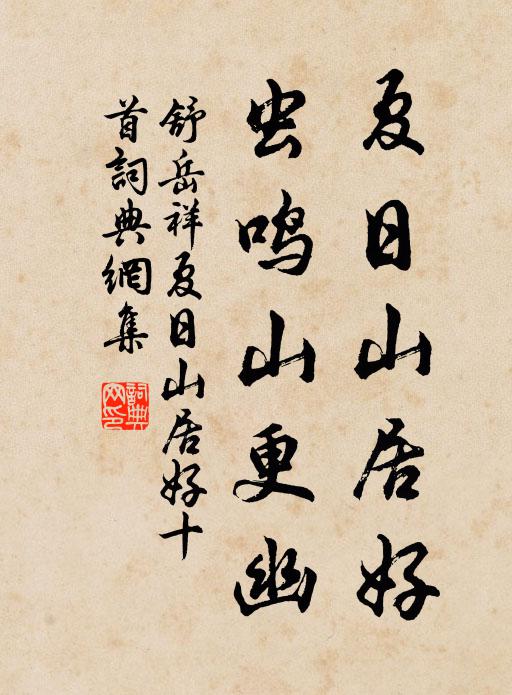 夏日山居好
虫鸣山更幽
舒岳祥夏日山居好十
首詞典網集
詞典网印